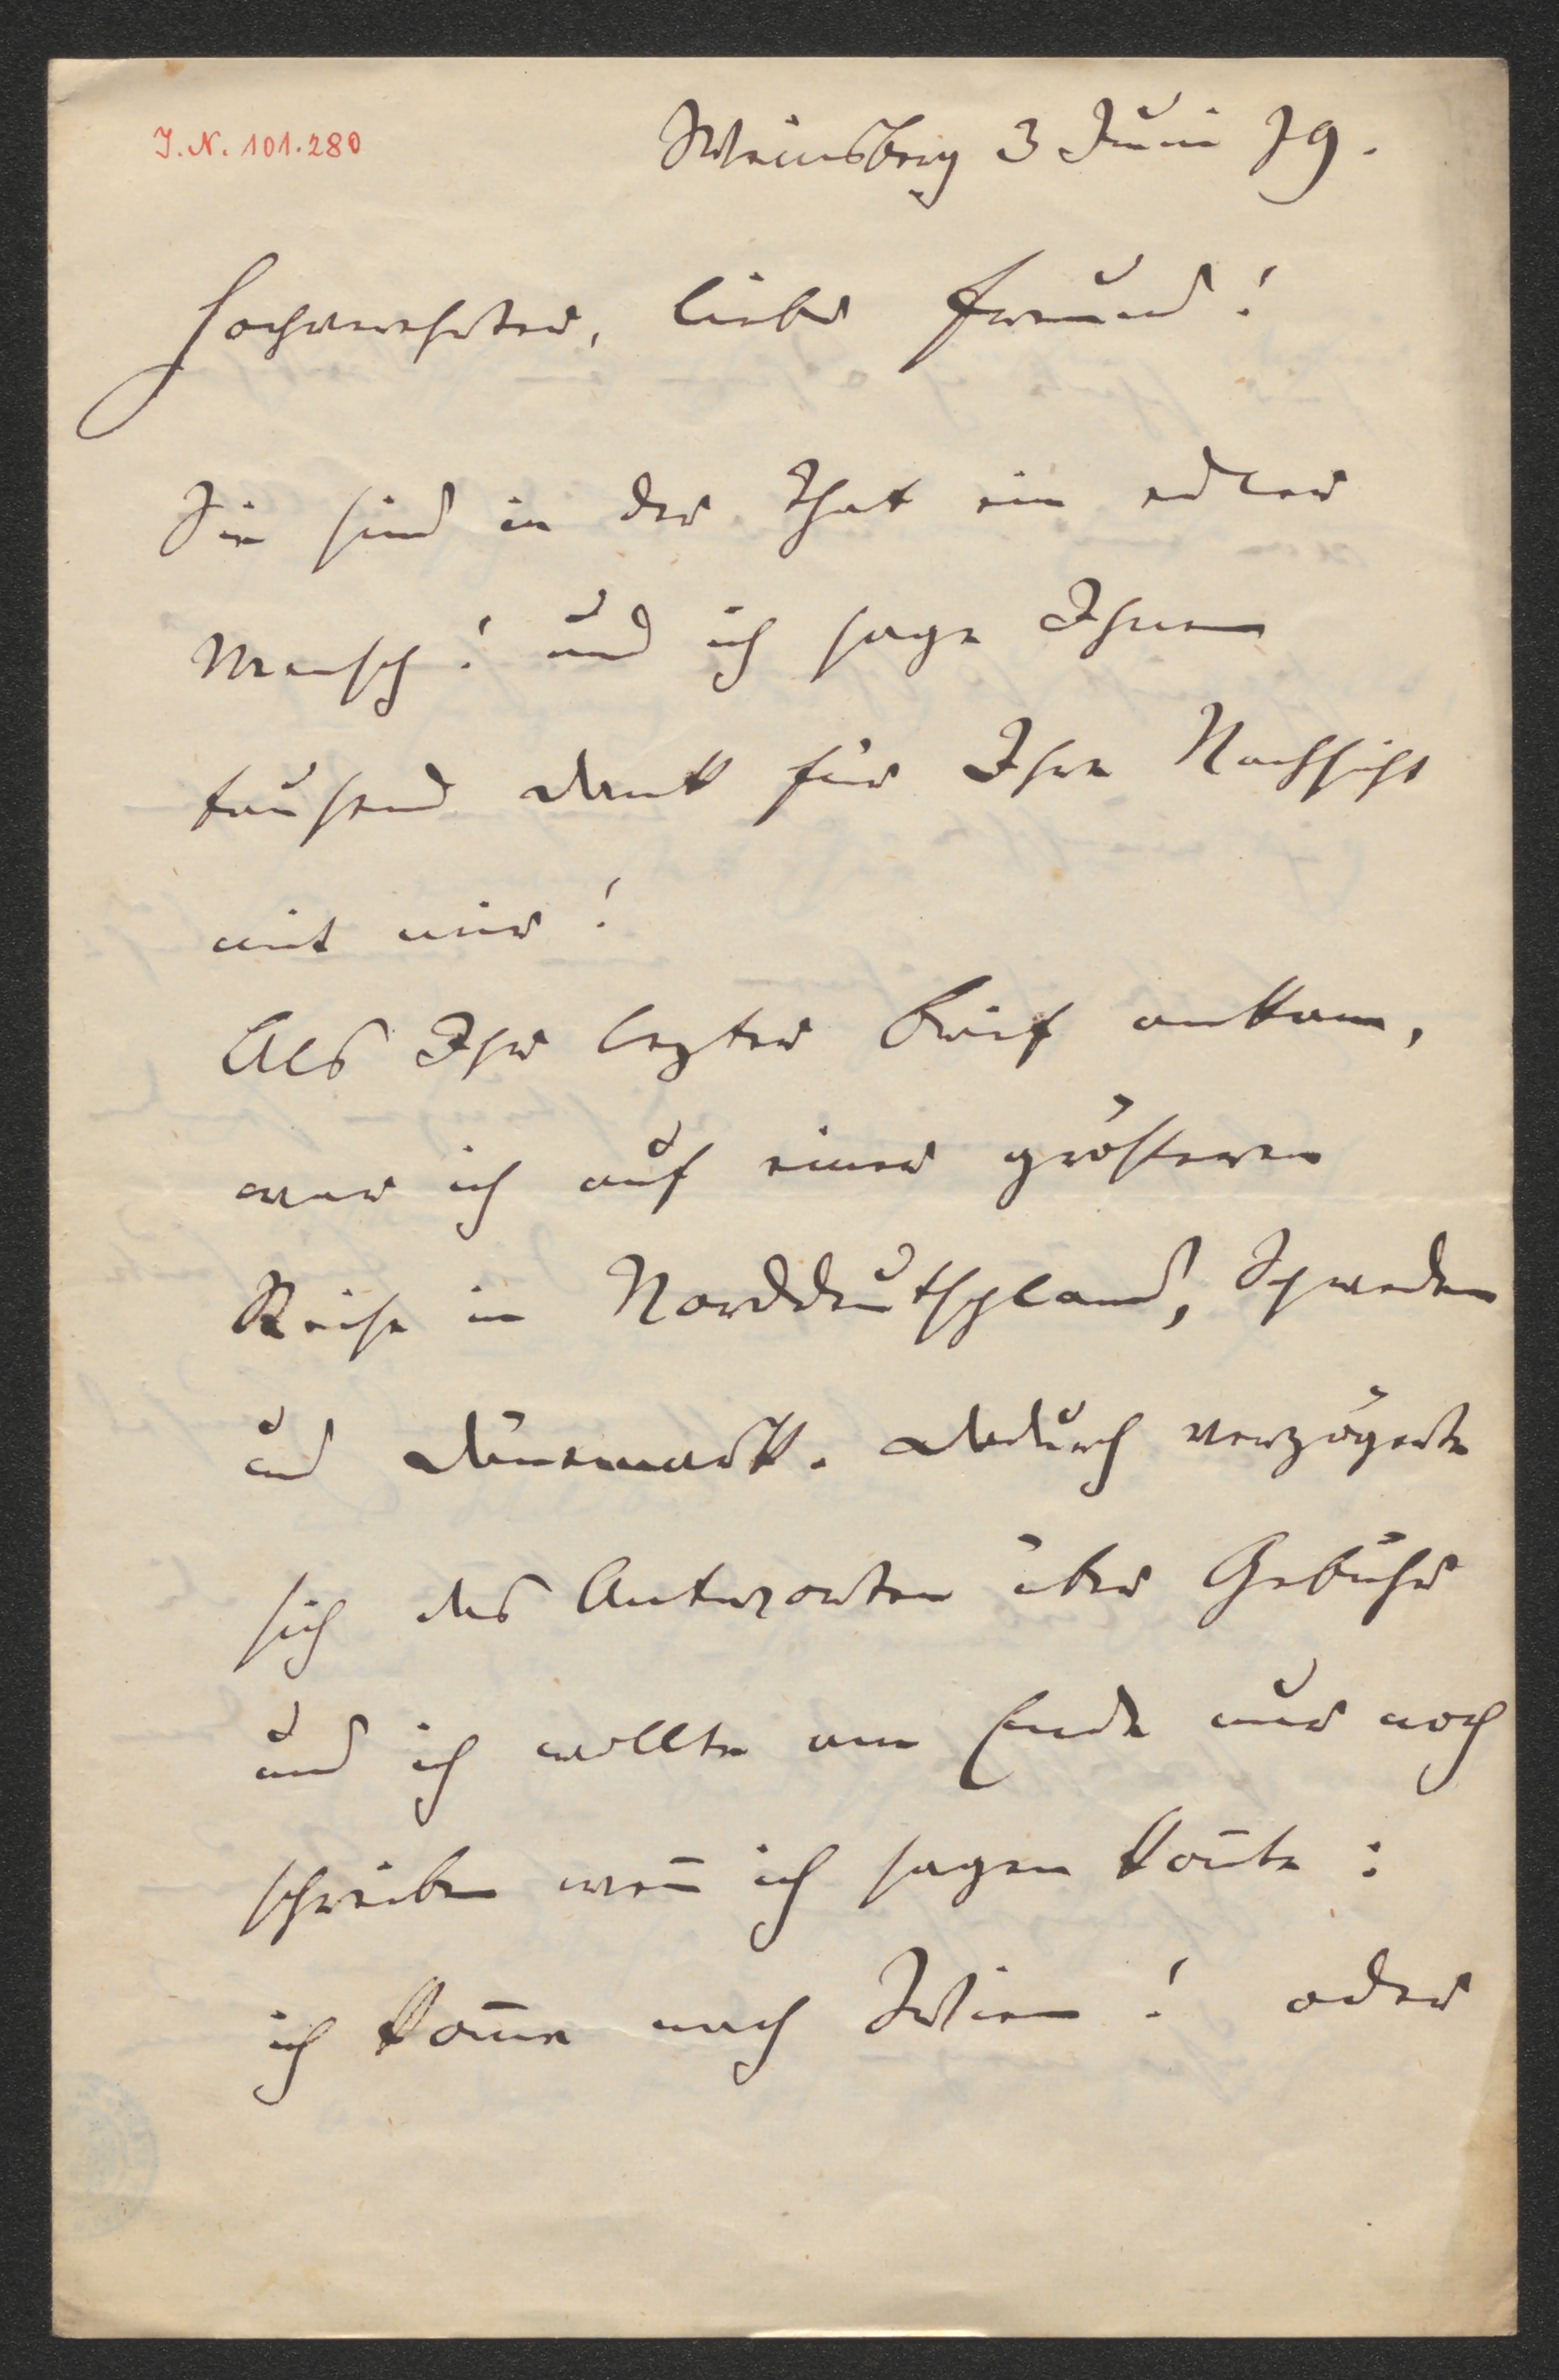 I.N. 101.280
Weinsberg 3 Juni 79.
Hochverehrter, lieber Freund!
Sie sind in der That ein edler
Mensch! und ich sage Ihnen
tausend Dank für Ihre Nachsicht
mit mir!
Als Ihr lezter Brief ankam,
war ich auf einer größeren
Reise in Norddeutschland, Schweden
und Dänemark. Dadurch verzögerte
sich das Antworten über Gebühr
und ich wollte am Ende nur noch
schreiben wen̄ ich sagen kon̄te:
ich kom̄e nach Wien! oder